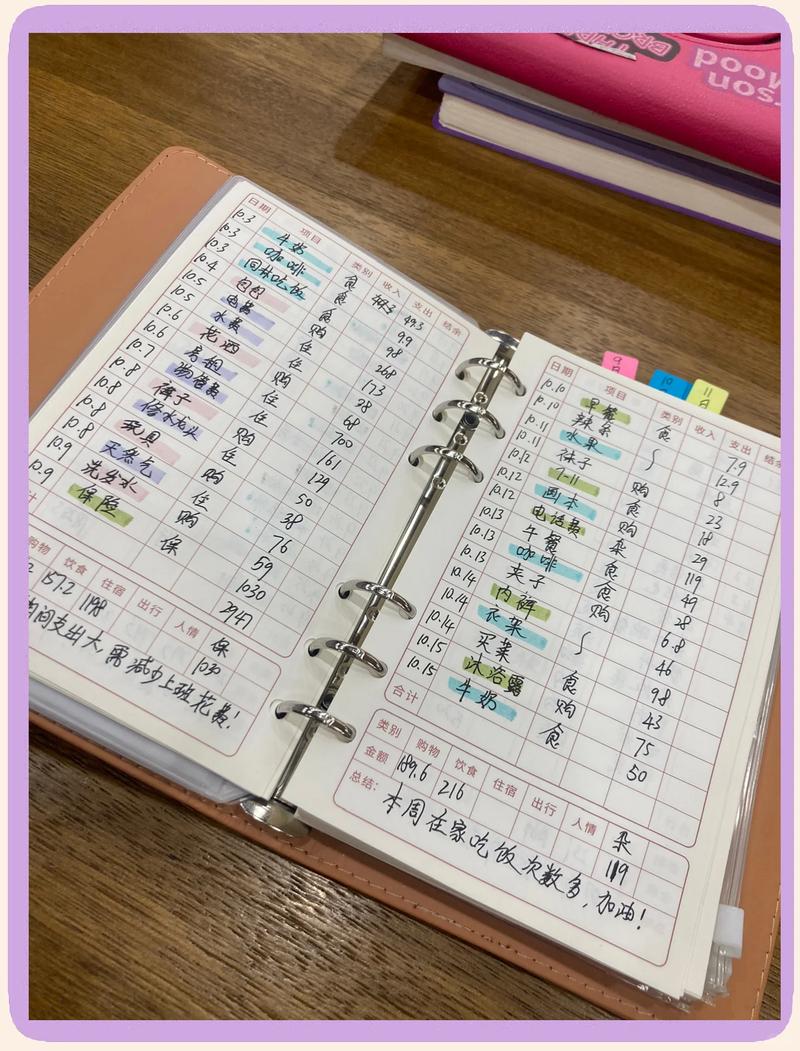 日期 项目 类别 收入 支出 结余
10.3 牛奶 食 49.3
10.3 咖啡 食 9.9
10.3 吃饭 食 98
10.4 包包 购 268
10.5 电费 住 173
10.5 水费 住 28
10.6 花洒 购 68
10.6 房租 住 700
10.7 物管费 住 161
10.8 裤子 购 129
10.8 修水龙头 住 50
10.8 玩具 购 38
10.9 天然气 住 76
10.9 洗发水 购 59
保险 保 1030
计 2941
购物 饮食 住宿 出行 人情 保
157.2 1198 1030
间支出大,需减少上班花费!
9月
10月
11月
日期 项目 类别 收入 支出 结余
10.10 早餐 食 7.9
10.10 辣条 12.9
10.11 水果 8
10.11 袜子 购 23
10.12 7-11 食 18
10.12 画本 购 29
10.12 电话费 杂 119
10.13 午餐 食 49
10.13 咖啡 食 28
10.13 夹子 购 6.8
10.14 内裤 46
10.14 衣架 98
10.14 买菜 食 43
10.15 沐浴露 购 75
10.15 牛奶 食 50
合计
类别 购物 饮食 住宿 出行 人情 杂
金额 189.6 216 119
总结: 本周在家吃饭次数多,加油!